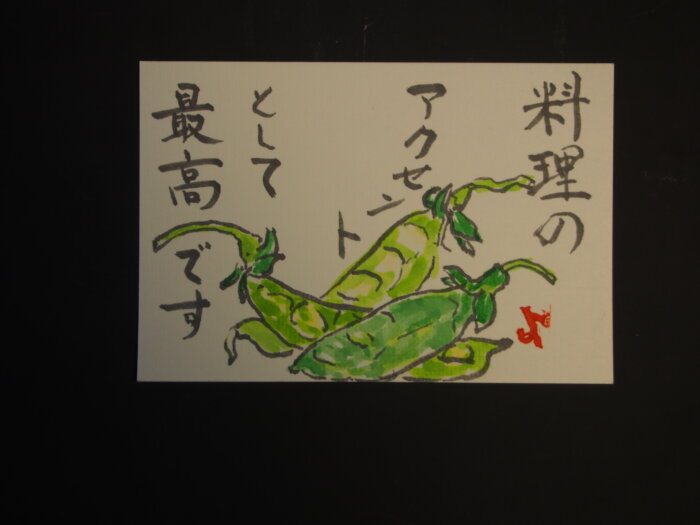 料理の
アクセント
として
最高です